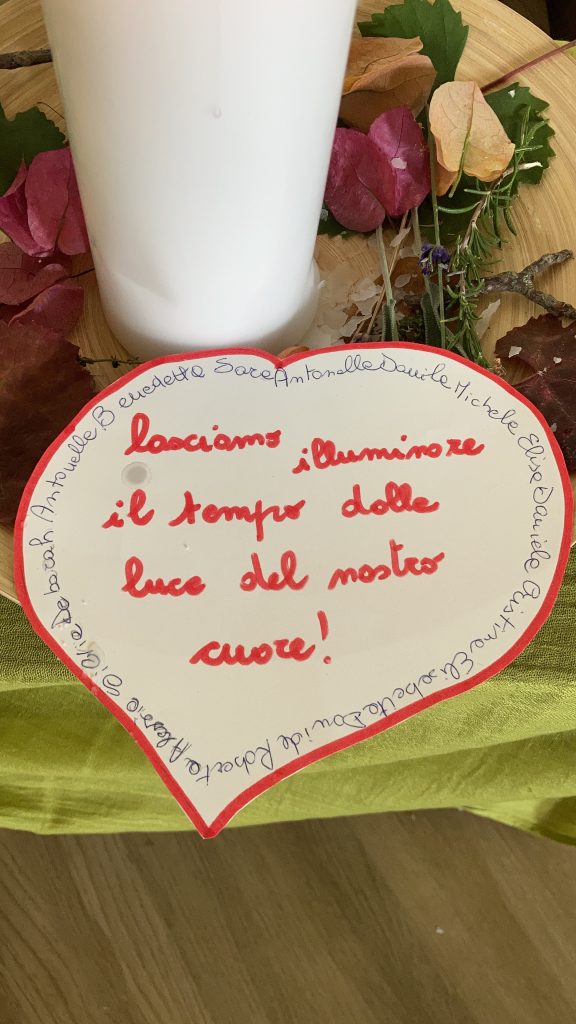 lasciamo illuminare
il tempo dalla
luce del nostro
cuore!
Deborah Antonella Benedetta Sara Antonella Danila Michela Elisa Daniele Cristina Elisabetta Davide Roberta Alessia Silvia